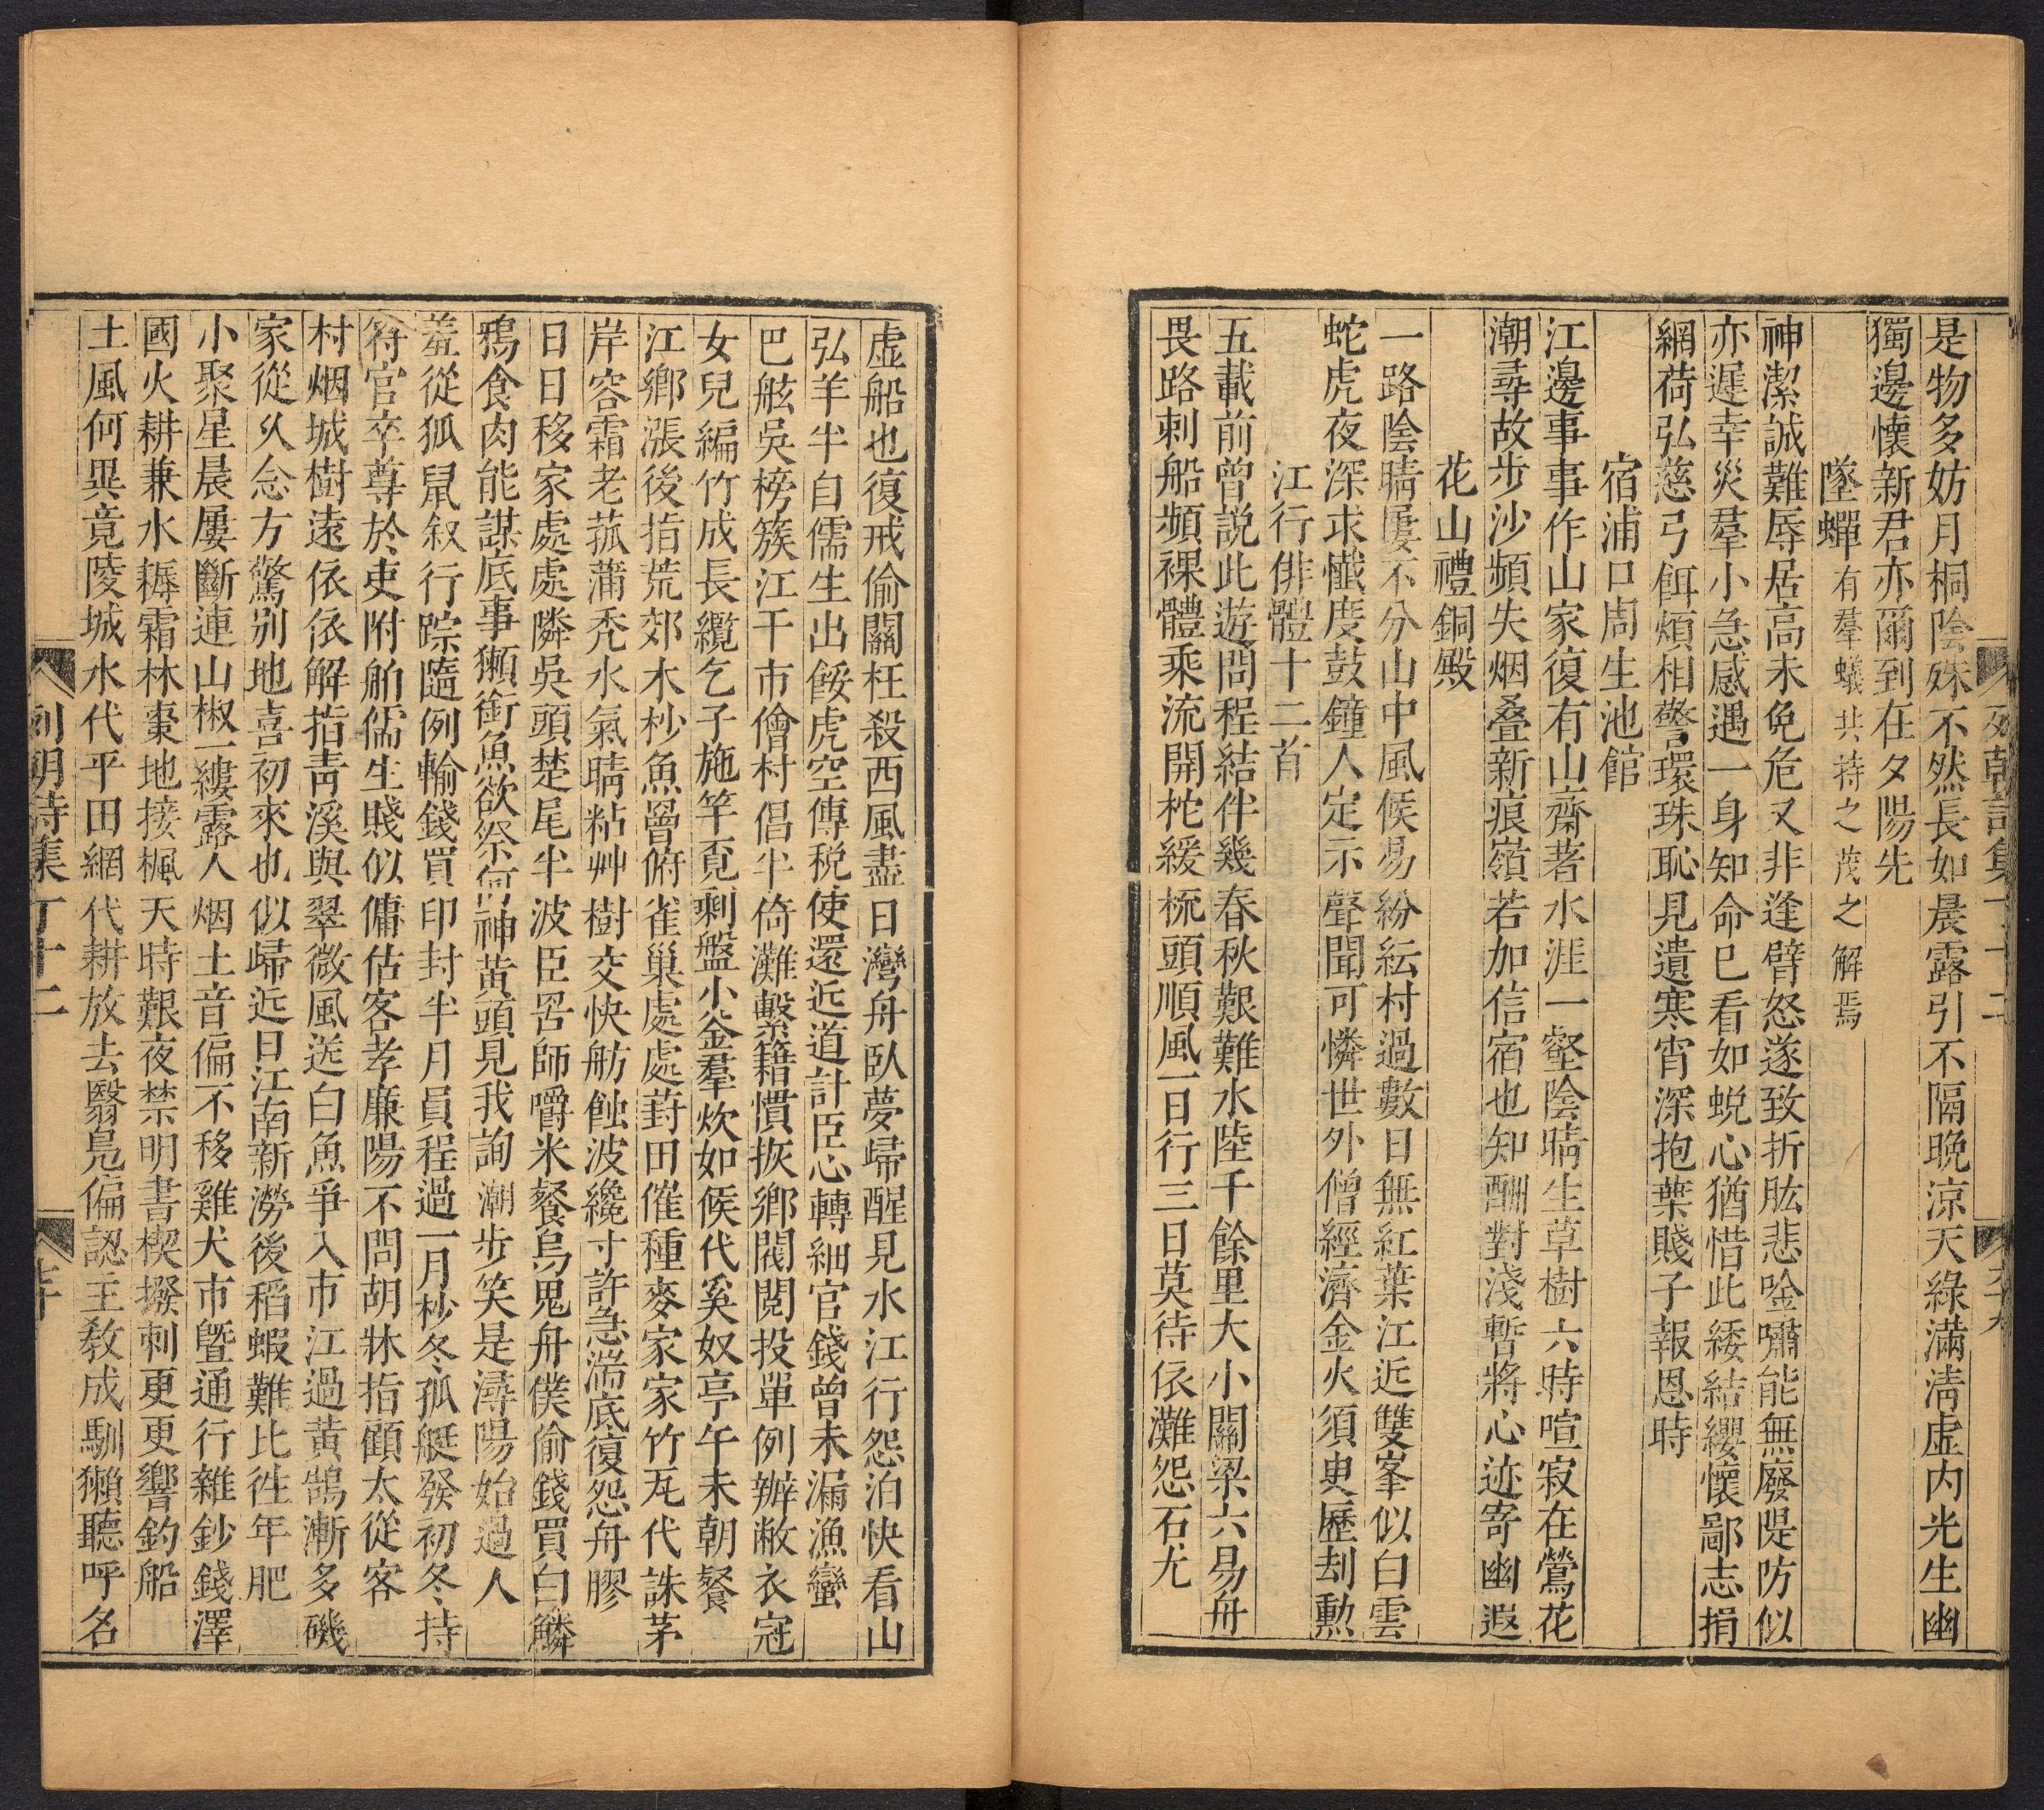 列朝詩集丁十二
是物多妨月桐陰殊不然長如晨露引不隔晚涼天綠滿淸虛內光生幽
獨邊懷新君亦爾到在夕陽先
墜蟬有羣蟻共持之茂之解焉
神潔誠難辱居高未免危又非逢臂怒遂致折肱悲唫嘯能無廢隄防似
亦遲幸災羣小急感遇一身知命已看如蛻心猶惜此緌結纓懷鄙志捐
網荷弘慈弓餌煩相警環珠恥見遺寒宵深抱葉賤子報恩時
宿浦口周生池館
江邊事事作山家復有山齋著水涯一壑陰晴生草樹六時喧寂在鶯花
潮尋故步沙頻失烟叠新痕嶺若加信宿也知酬對淺暫將心迹寄幽遐
花山禮銅殿
一路陰晴屢不分山中風候易紛紜村過數日無紅葉江近雙峯似白雲
蛇虎夜深求懺度鼓鐘人定示聲聞可憐世外僧經濟金火須臾歷刦勲
江行俳體十二首
五載前曾説此遊問程結伴幾春秋艱難水陸千餘里大小關梁六易舟
畏路刺船頻裸體乘流開柁緩梳頭順風一日行三日莫待依灘怨石尤
虛船也復戒偷關枉殺西風盡日灣舟臥夢歸醒見水江行怨泊快看山
弘羊半自儒生出餒虎空傳稅使還近道計臣心轉細官錢曾未漏漁蠻
巴舷吳榜簇江干市儈村倡半倚灘繫籍慣扳鄉閥閱投單例辦敝衣冠
女兒編竹成長纜乞子施竿覓剩盤小釜羣炊如候代奚奴亭午未朝餐
江鄉漲後指荒郊木杪魚罾俯雀巢處處葑田催種麥家家竹瓦代誅茅
岸容霜老菰蒲禿水氣晴粘艸樹交快舫蝕波纔寸許急湍底復怨舟膠
日日移家處處隣吳頭楚尾半波臣罟師嚼米餐烏鬼舟僕偷錢買白鱗
鴉食肉能謀底事獺銜魚欲祭何神黃頭見我詢潮步笑是潯陽始過人
羞從狐鼠叙行踪隨例輸錢買印封半月員程過一月杪冬孤艇發初冬持
符官卒尊於吏附舶儒生賤似傭估客孝廉陽不問胡牀指顧太從客
村烟城樹遠依依解指靑溪與翠微風送白魚爭入市江過黃鵠漸多磯
家從久念方驚别地喜初來也似歸近日江南新澇後稻蝦難比徃年肥
小聚星晨屢斷連山椒一縷露人烟土音偏不移雞犬市曁通行雜鈔錢澤
國火耕兼水耨霜林棗地接楓天時艱夜禁明書楔撥刺更更響釣船
土風何異竟陵城水代平田網代耕放去翳鳧偏認主敎成馴獺聽呼名
列朝詩集丁十二